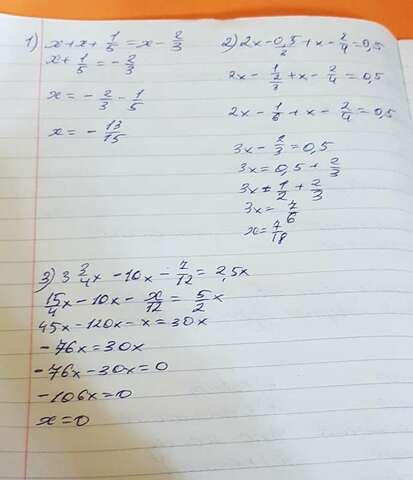 1) x+x+1/5=x-2/3
x+1/5=-2/3
x=-2/3-1/5
x=-13/15
2) 2x-0,5/2+x-2/4=0,5
2x-1/2/3+x-2/4=0,5
2x-1/6+x-2/4=0,5
3x-2/3=0,5
3x=0,5+2/3
3x=1/2+2/3
3x=7/6
x=7/18
3) 3 3/4x-10x-7/12=2,5x
15/4x-10x-x/12=5/2x
45x-120x-x=30x
-76x=30x
-76x-30x=0
-106x=0
x=0